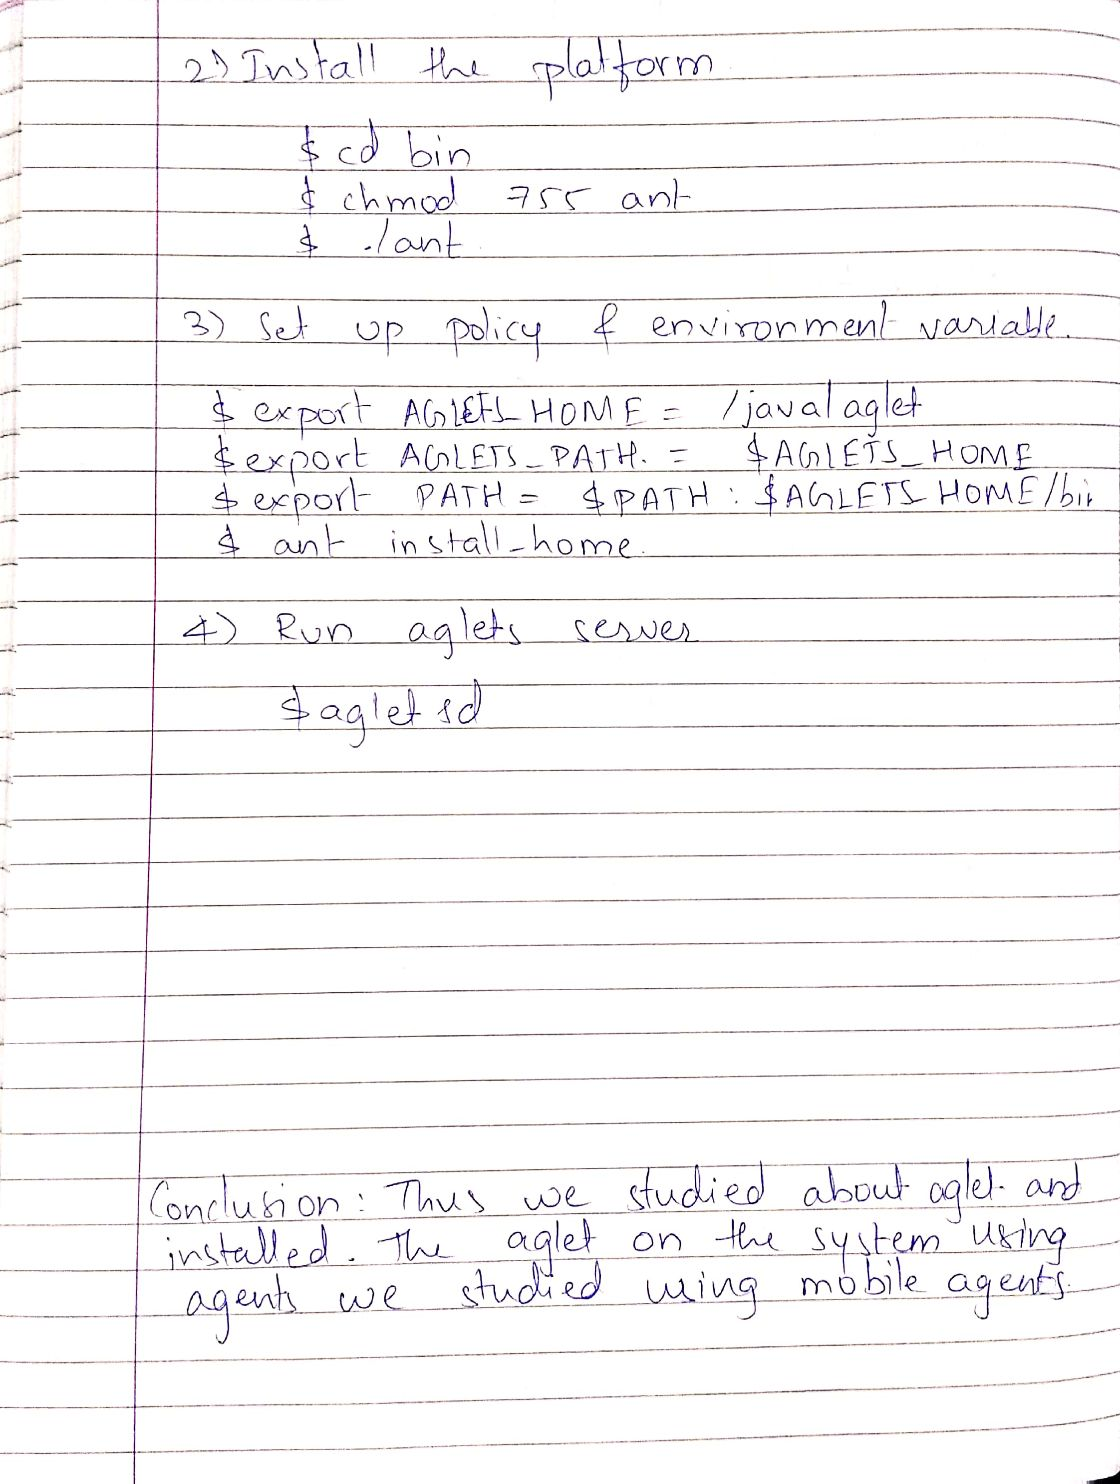 2) Install the platform
$ cd bin
$ chmod 755 ant
$ ./ant
3) Set up policy & environment variable.
$ export AGLETS_HOME = /java/aglet
$ export AGLETS_PATH. = $AGLETS_HOME
$ export PATH = $PATH : $AGLETS_HOME/bin
$ ant install_home.
4) Run aglets server
$ agletsd
Conclusion : Thus we studied about aglet and
installed. The aglet on the system using
agents we studied using mobile agents.